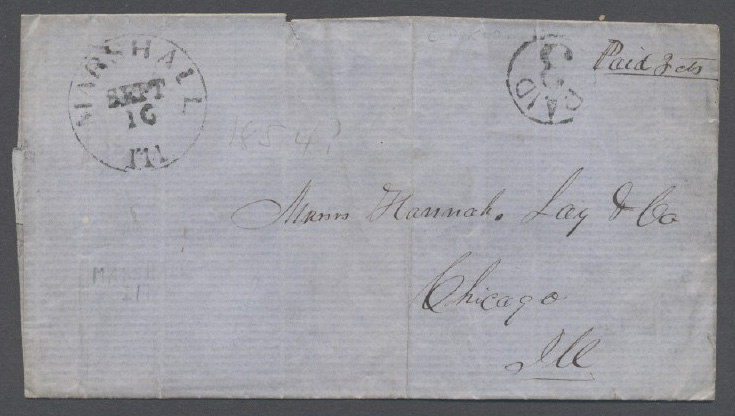 MARSHALL
SEPT
16
Ill
PAID
3
Paid 3 cts
1854?
Messrs Hannah, Lay & Co
Chicago
Ill
MARSHALL
Ill